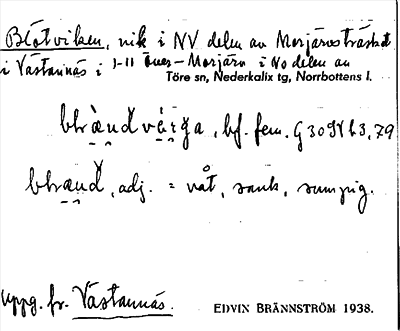 Blötviken, vik i NV delen av Morjärvsträsket
i Västannäs i J-II Över-Morjärv i No delen av
Töre sn, Nederkalix tg, Norrbottens l.
bf. fem. G309 §63, 79
adj. = våt, sank, sumpig.
Uppg. fr. Västannäs. EDVIN BRÄNNSTRÖM 1938.